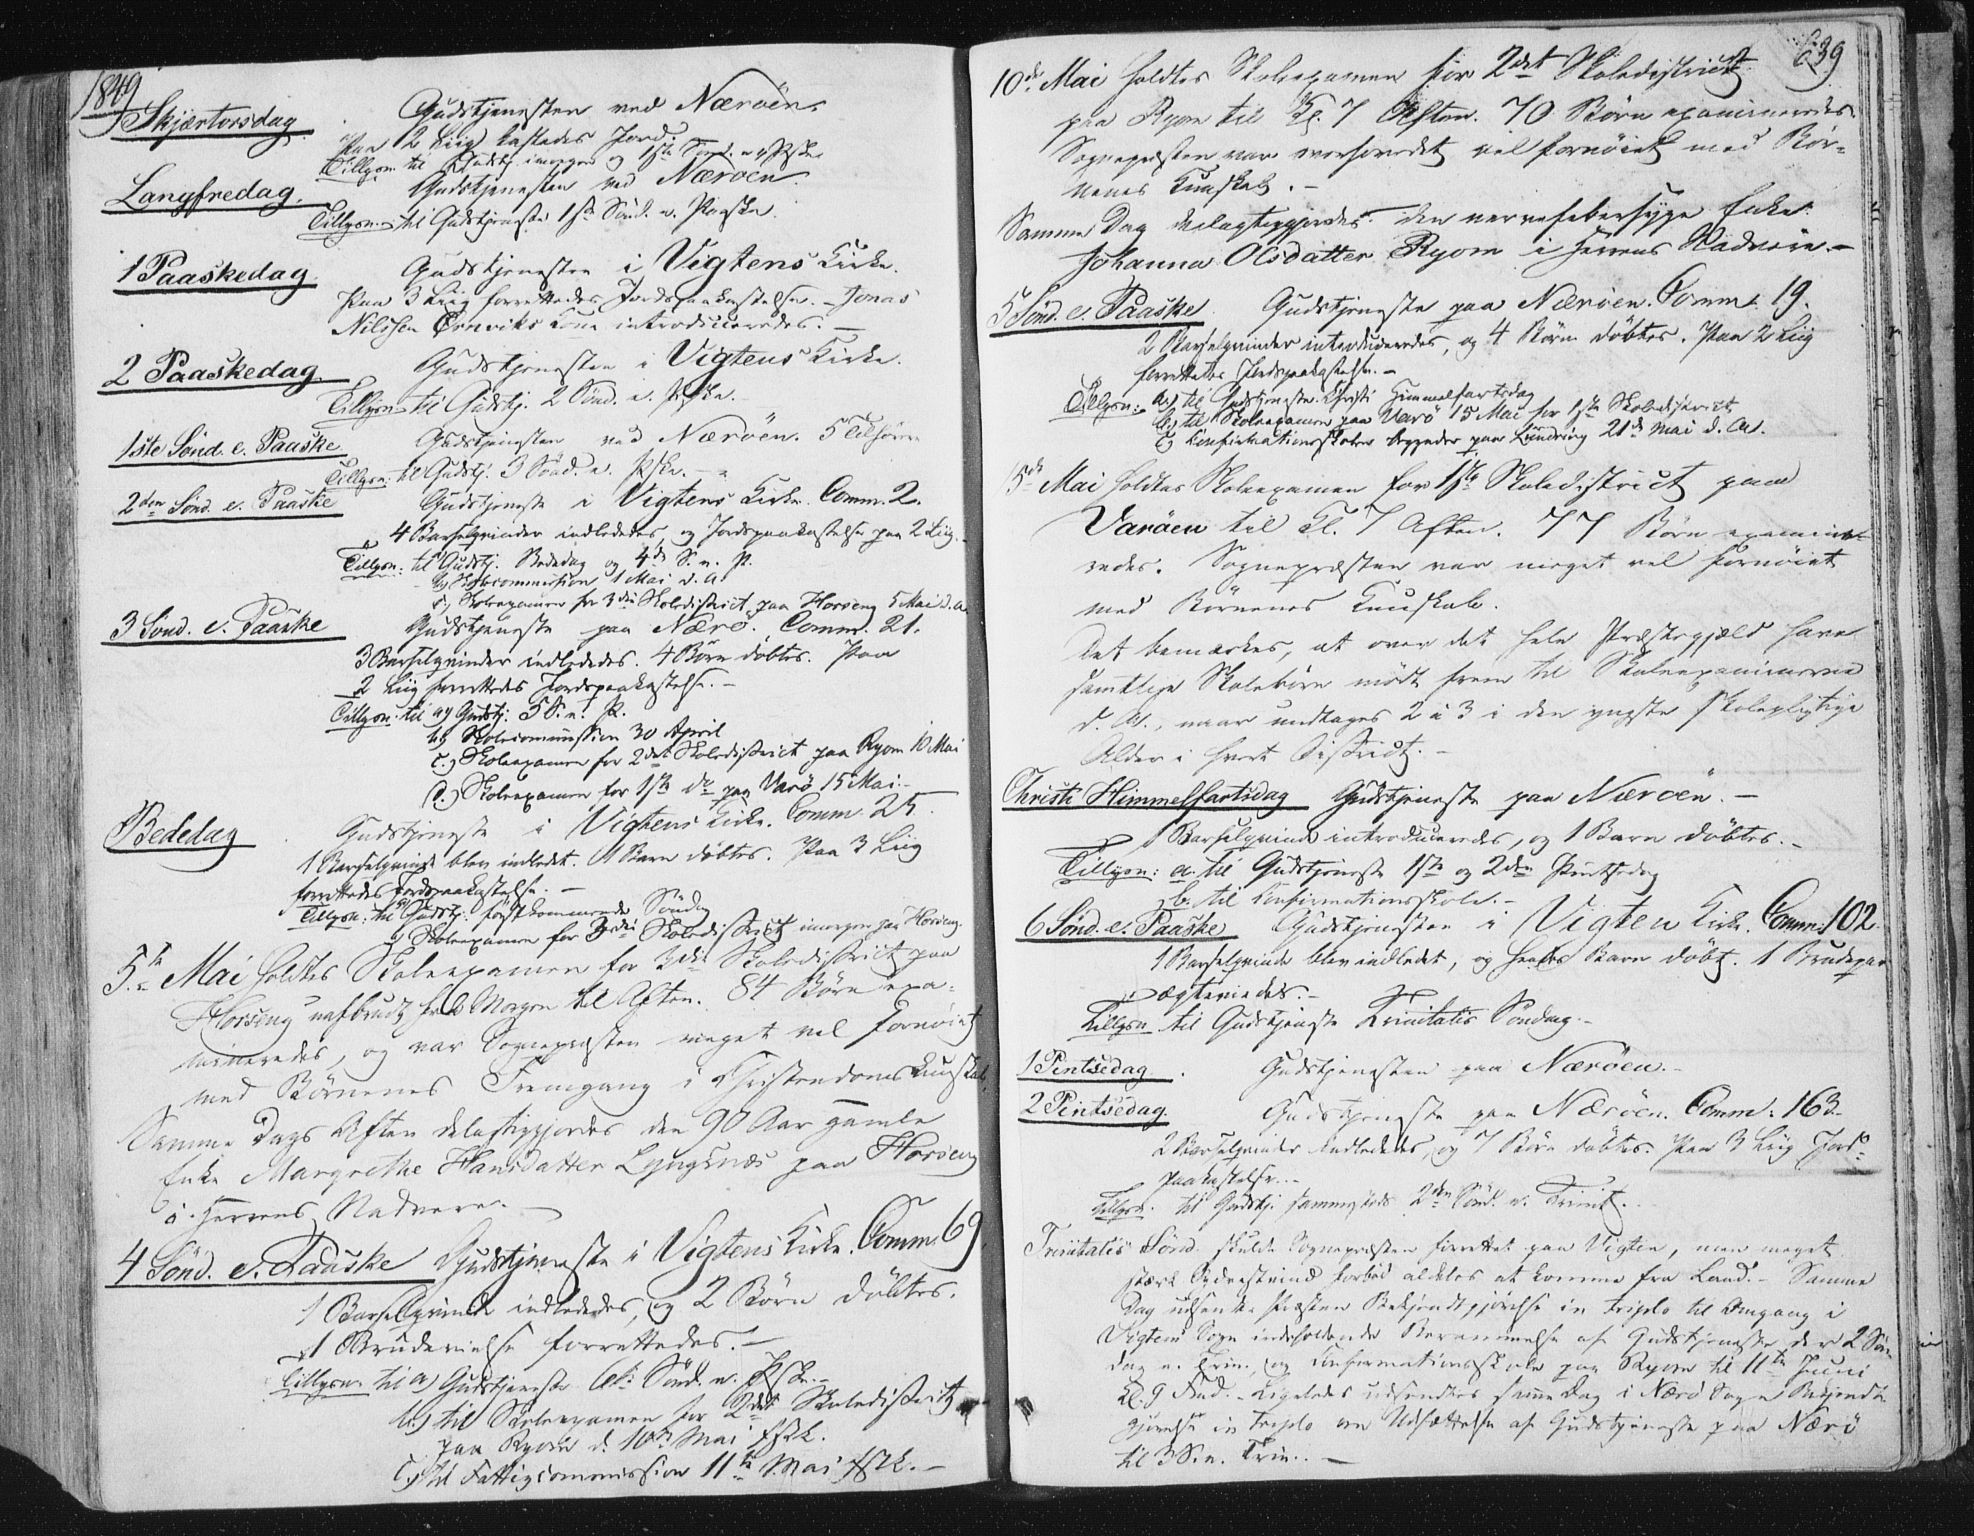 1849
Skjærtorsdag. Gudstjenesten ved Nærøen.
Paa 2 Liig kastedes Jord.
Tillysn. til Gudstj. imorgen og 1ste Sønd. e. Pske
Langfredag. Gudstjenesten ved Nærøen.
Tillysn. til Gudstjeneste 1ste Sønd. e. Paaske.
1 Paaskedag. Gudstjenesten i Vigtens Kirke.
Paa 3 Liig forrettedes Jordspaakastelse. – Jonas
Nilssen Ørnviks Kone introduceredes. –
2 Paaskedag. Gudstjenesten i Vigtens Kirke.
Tillysn. til Gudstj. 2 Sønd. e. Pske. –
1ste Sønd. e. Paaske Gudstjenesten ved Nærøen. 5
Tillysn: til Gudstj. 3 Sønd. e. Pske. –
2den Sønd. e. Paaske Gudstjeneste i Vigtens Kirke. Comm. 2.
4 Barselqvinder indlededes, og Jordspaakastelse paa 2 Liig. –
Tillysn: til Gudstj. Bededag og 4de S. e. P.
b) Skolecommission 1 Mai d. A.
c) Skoleexamen for 3die Skoledistrict paa Horseng 5 Mai d. A.
3 Sønd. e. Paaske Gudstjeneste paa Nærø. Comm. 21.
3 Barselqvinder indlededes. 4 Børn døbtes. Paa
2 Liig forrettedes Jordspaakastelse. –
Tillysn. til a) Gudstj. 5 S. e. P.
b) Skolecommission 30 April
c.) Skoleexamen for 2det Skoledistrict paa Ryom 10 Mai
d.) Skoleexamen for 1ste do paa Varø 15 Mai. –
Bededag Gudstjeneste i Vigtens Kirke. Comm. 25.
1 Barselqvinde blev indledet. 1 Barn døbtes. Paa 3 Liig
forrettedes Jordspaakastelse. –
Tillysn. til a) Gudstj. førstkommende Søndag
b) Skoleexamen for 3die Skoledistrict imorgen paa Horseng.
5te Mai holdtes Skoleexamen for 3die Skoledistrict paa
Horseng uafbrudt fra Morgen til Aften. 84 Børn exa-
mineredes, og var Sognepræsten meget vel fornøiet
med Børnenes Fremgang i Christendomskundskab.
Samme Dags Aften delagtiggjordes den 90 Aar gamle
Enke Margrethe Hansdatter Lyngsnæs paa Horseng
i Herrens Nadvere. –
4 Sønd. e. Paaske Gudstjeneste i Vigtens Kirke. Comm. 69.
1 Barselqvinde indlededes, og 2 Børn døbtes.
1 Brudevielse forrettedes. –
Tillysn. til a) Gudstjeneste 6te Sønd. e. Pske. –
b.) til Skoleexamen for 2det Skoledistrict
paa Ryom d. 10de Mai
c.) til Fattigcommission 11te Mai –
639
10de Mai holdtes Skoleexamen for 2det Skoledistrict
paa Ryom til Kl. 7 Aften. 70 Børn examineredes.
Sognepræsten var overhovedet vel fornøiet med Bør-
nenes Kundskab. –
Samme Dag delagtiggjordes den nervefebersyge Enke
Johanna Olsdatter Ryom i Herrens Nadvere. –
5 Sønd. e. Paaske Gudstjeneste paa Nærøen. Comm. 19.
2 Barselqvinder introduceredes, og 4 Børn døbtes. Paa 2 Liig
forrettedes Jordspaakastelse. –
Tillysn: a.) til Gudstjeneste Christi Himmelfartsdag
b.) til Skoleexamen paa Varø 15 Mai for 1ste Skoledistrict
c.) Confirmationsskolen begynder paa Lundring 21de Mai d. A.
15de Mai holdtes Skoleexamen for 1ste Skoledistrict paa
Varøen til Kl. 7 Aften. 77 Børn examine-
redes. Sognepræsten var meget vel fornøiet
med Børnenes Kundskab.
Det bemærkes, at over det hele Præstegjæld have
samtlige Skolebørn mødt frem til Skoleexaminerne
d. A., naar undtages 2 à 3 i den yngste skolepligtige
Alder i hvert District. –
Christi Himmelfartsdag Gudstjeneste paa Nærøen. –
1 Barselqvinde introduceredes, og 1 Barn døbtes. –
Tillysn: a. til Gudstjeneste 1ste og 2den Pintsedag
b. til Confirmationsskole. –
6 Sønd. e. Paaske Gudstjenesten i Vigten Kirke. Comm. 102.
1 Barselqvinde blev indledet, og hendes Barn døbt. 1 Brudepar
ægteviedes. –
Tillysn. til Gudstjeneste Trinitatis Søndag. –
1 Pintsedag. Gudstjenesten paa Nærøen. –
2 Pintsedag. Gudstjeneste paa Nærøen. Comm: 163.
2 Barselqvinder indlededes, og 7 Børn døbtes. Paa 3 Liig Jords-
paakastelse. –
Tillysn. til Gudstj. sammesteds 2den Sønd. e. Trinit.
Trinitatis Sønd. skulde Sognepræsten forrettet paa Vigten, men meget
stærk forbød aldeles at komme fra Land. – Samme
Dag udsendte Præsten Bekjendtgjørelse in triplo til Omgang i
Vigten Sogn indeholdende Berammelse af Gudstjeneste der 2 Søn-
dag e. Trin. og Confirmationsskole paa Ryom til 11te Juni
Kl. 9 Fmd. – Ligeledes udsendtes samme Dag i Nærø Sogn Bekjendt-
gjørelse in triplo om Udsættelse af Gudstjeneste paa Nærø
til 3 S. e. Trin. –